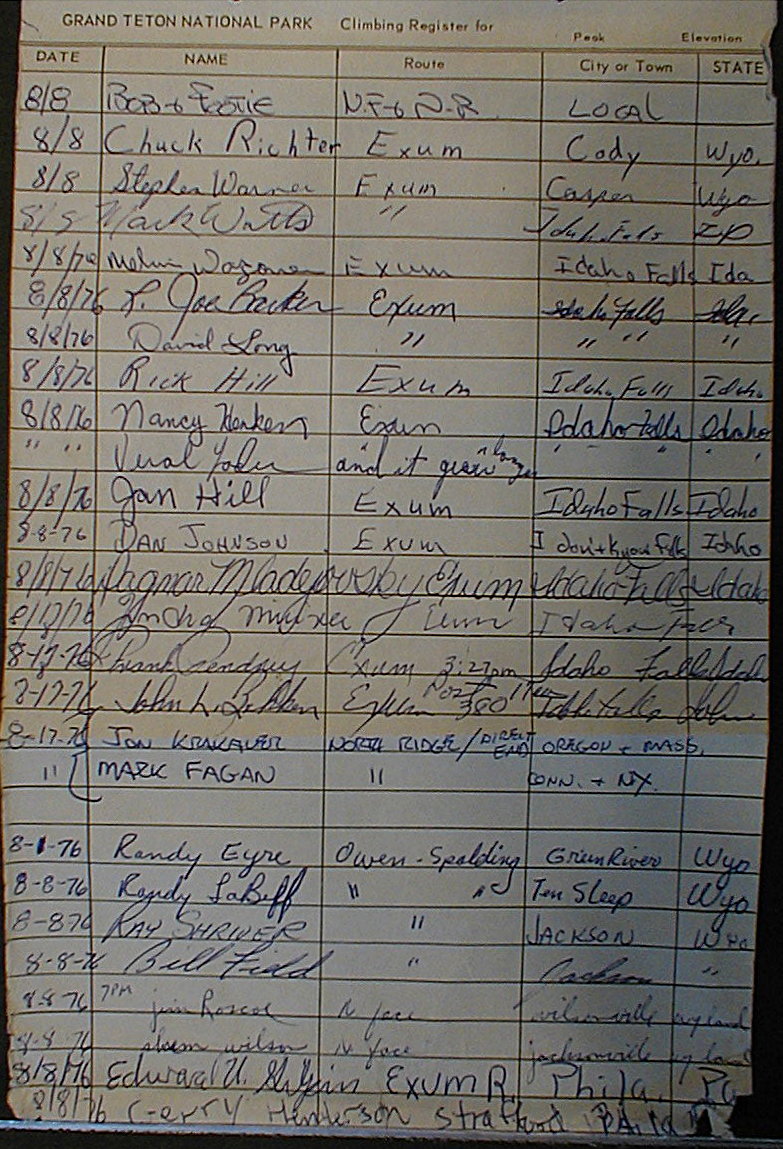 GRAND TETON NATIONAL PARK Climbing Register for Peak Elevation
DATE NAME Route City or Town STATE
8/8 BOB N.F. N.R. LOCAL
8/8 Chuck Richter Exum Cody Wyo.
8/8 Stephen Warner Exum Casper Wyo
8/8 Mark Watts " Idaho Falls ID
8/8/76 Exum Idaho Falls Ida
8/8/76 L. Joe Exum Idaho Falls Ida.
8/8/76 David Long " " " "
8/8/76 Rick Hill Exum Idaho Falls Idaho
8/8/76 Nancy Exum Idaho Falls Idaho
" " and it grew longer " " "
8/8/76 Jan Hill Exum Idaho Falls Idaho
8-8-76 DAN JOHNSON Exum I don't know Falls Idaho
8/8/76 Dagmar Exum Idaho Falls Idaho
Idaho
Exum 3:27pm Idaho Falls Idaho
John L. Exum 380 Idaho Falls
8-17-76 JON KRAKAUER NORTH RIDGE/DIRECT END OREGON + MASS.
" MARK FAGAN " CONN. + NY.
8-1-76 Randy Eyre Owen-Spalding Green River Wyo
8-8-76 Randy LaBeff " " Ten Sleep Wyo
8-8-76 RAY SHRIVER " JACKSON Wyo
8-8-76 Bill Field " Jackson "
8-8-76 7PM jim Roscoe N face wilsonville
8-8-76 wilson N face jacksonville
8/8/76 Edward U. EXUM R. Phila. Pa
8/8/76 Gerry Henderson Strafford